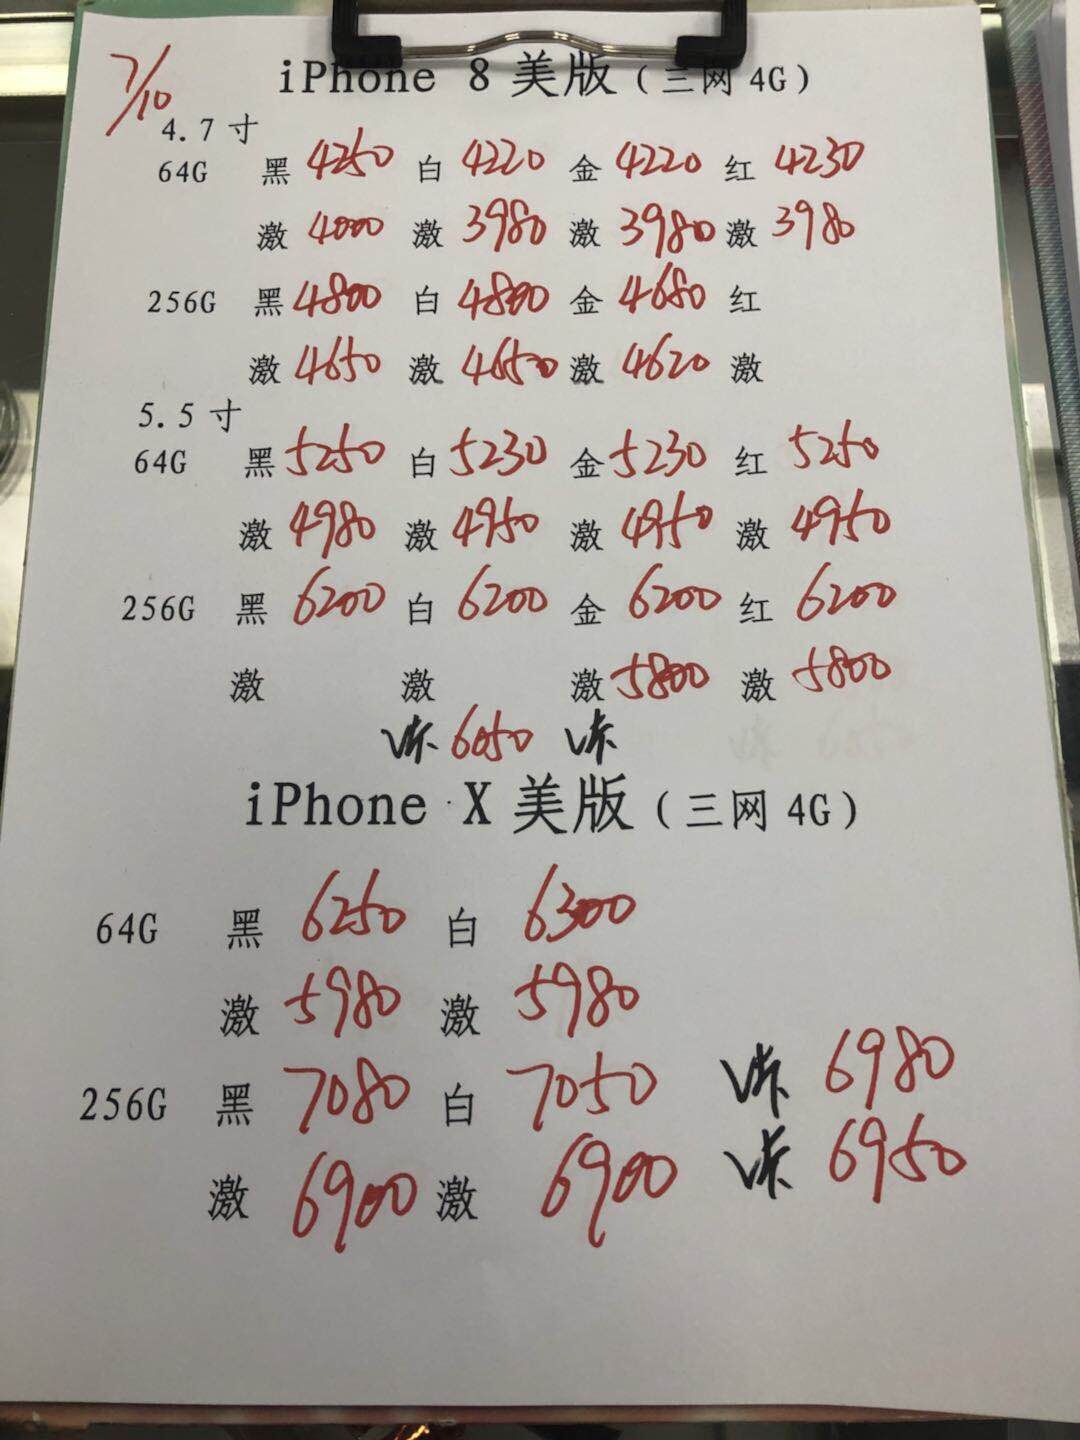 7/10
iPhone 8 美版（三网4G）
4.7寸
64G 黑 4250 白 4220 金 4220 红 4230
激 4000 激 3980 激 3980 激 3980
256G 黑 4800 白 4800 金 4680 红
激 4650 激 4650 激 4620 激
5.5寸
64G 黑 5250 白 5230 金 5230 红 5250
激 4980 激 4950 激 4950 激 4950
256G 黑 6200 白 6200 金 6200 红 6200
激 激 激 5800 激 5800
6050
iPhone X 美版（三网4G）
64G 黑 6250 白 6300
激 5980 激 5980
256G 黑 7080 白 7050 6980
激 6900 激 6900 6950